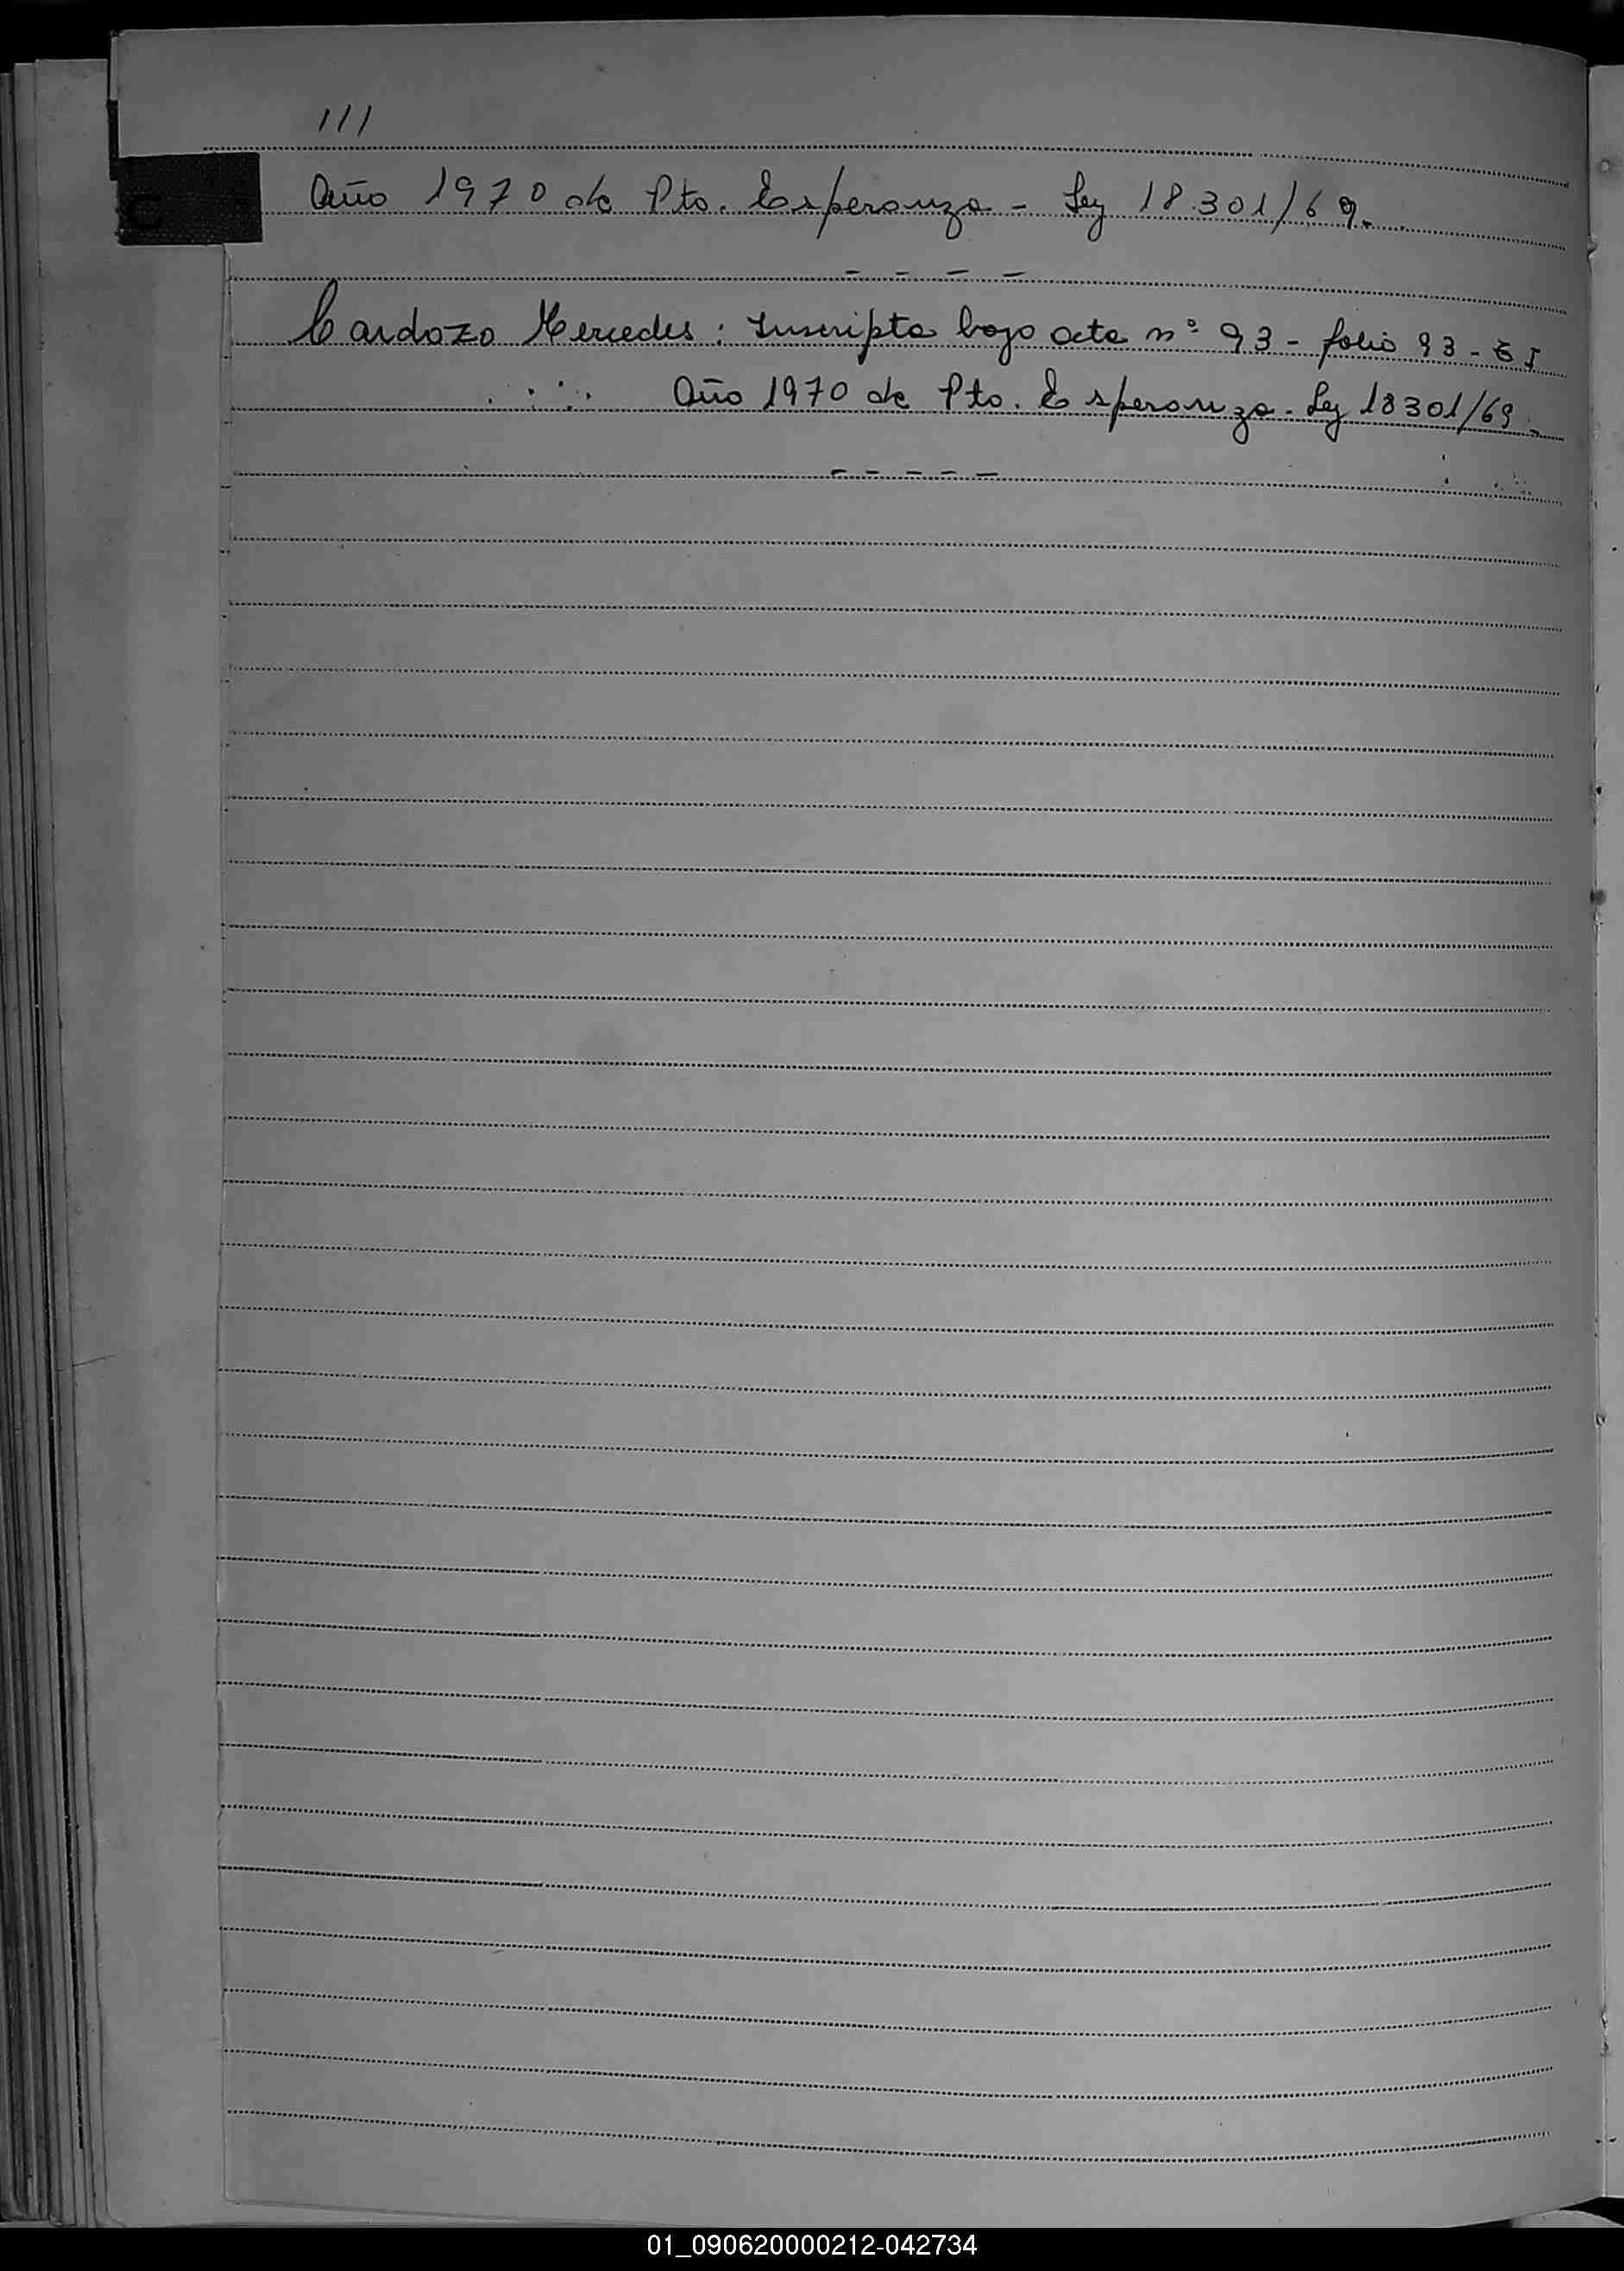 ///
C
Año 1970 de Pto. Esperanza - Ley 18.301/69.
Cardozo Mercedes: Inscripta bajo acta nº 93 - folio 93 - 
Año 1970 de Pto. Esperanza - Ley 18301/69.
01_090620000212-042734